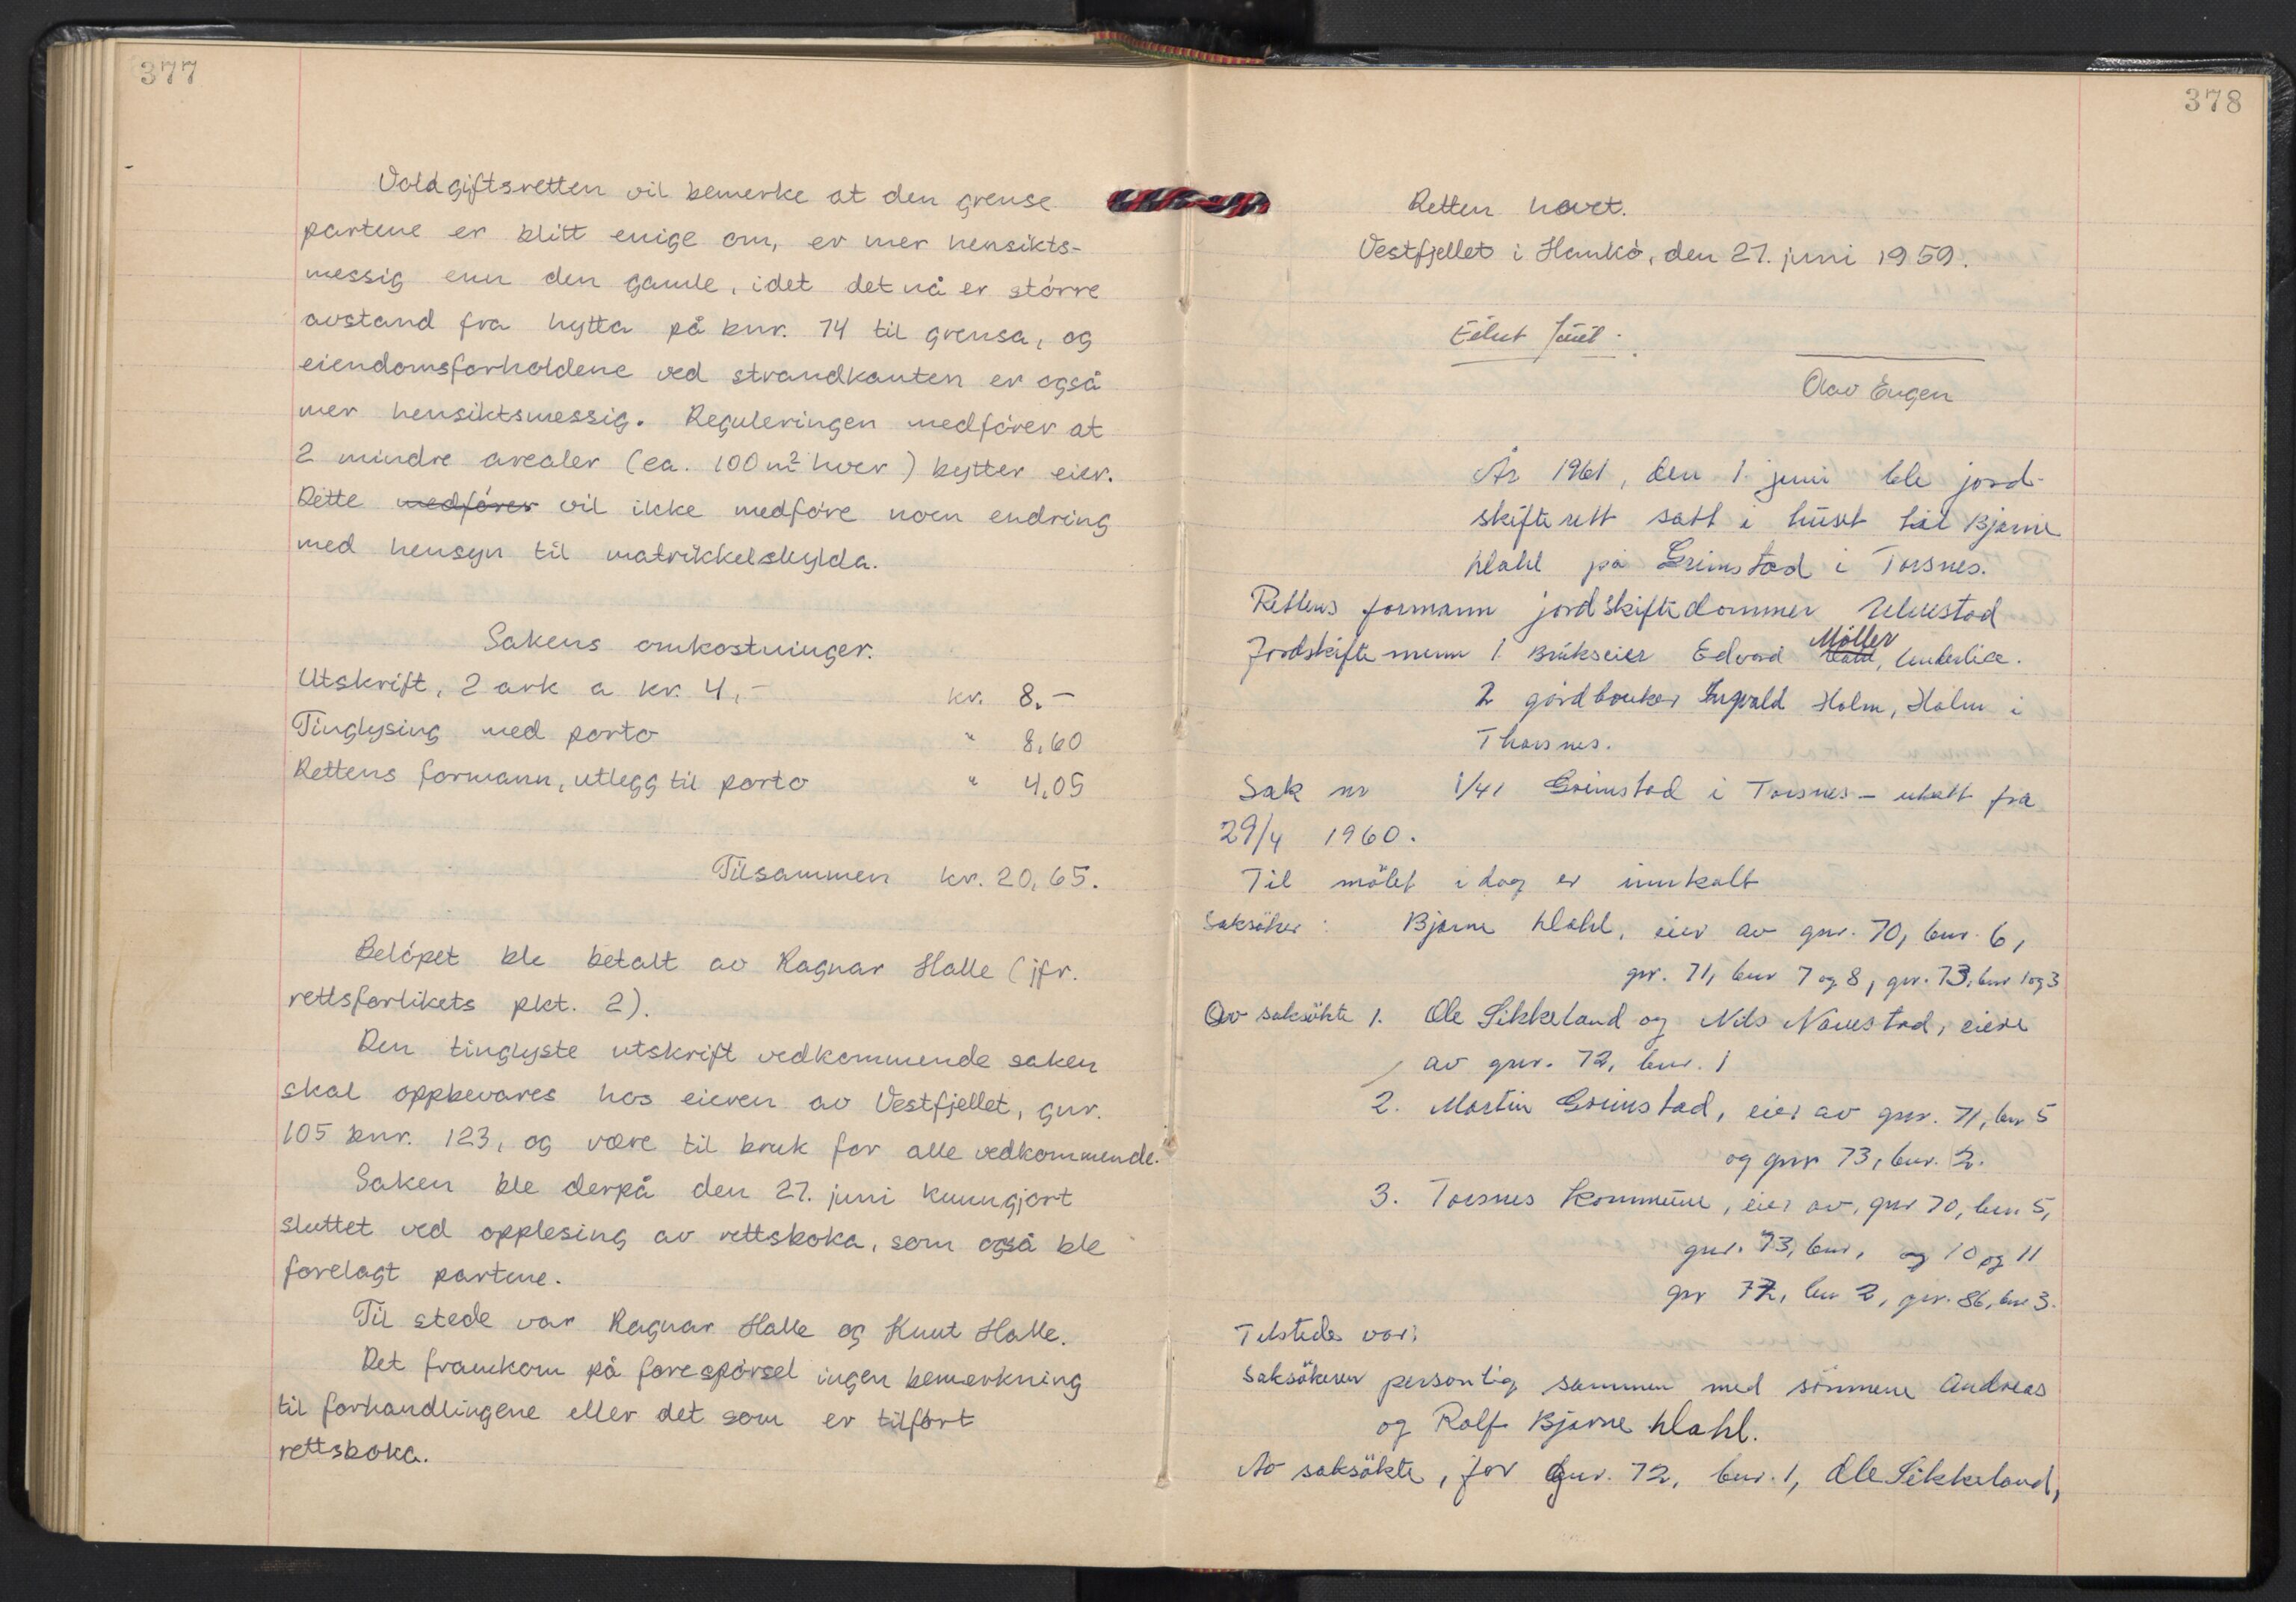 377
Voldgiftsretten vil bemerke at den grense
partene er blitt enige om, er mer hensikts-
messig enn den gamle, idet det nå er større
avstand fra hytta på bnr. 74 til grensa, og
eiendomsforholdene ved strandkanten er også
mer hensiktsmessig. Reguleringen medfører at
2 mindre arealer (ca. 100 m² hver) bytter eier.
Dette medfører vil ikke medføre noen endring
med hensyn til matrikkelskylda.
Sakens omkostninger.
Utskrift, 2 ark a kr. 4,- kr. 8.-
Tinglysing med porto " 8,60
Rettens formann, utlegg til porto " 4,05
Tilsammen kr. 20,65.
Beløpet ble betalt av Ragnar Halle (jfr.
rettsforlikets pkt. 2).
Den tinglyste utskrift vedkommende saken
skal oppbevares hos eieren av Vestfjellet, gnr.
105 bnr. 123, og være til bruk for alle vedkommende.
Saken ble derpå den 27. juni kunngjort
sluttet ved opplesing av rettsboka, som også ble
forelagt partene.
Til stede var Ragnar Halle og Knut Halle.
Det framkom på forespørsel ingen bemerkning
til forhandlingene eller det som er tilført
rettsboka.
378
Retten hevet.
Vestfjellet i Hankø, den 27. juni 1959.
Olav Eugen
År 1961, den 1. juni ble jord-
skifterett satt i huset til Bjarne
Dahl på Grimstad i Torsnes.
Rettens formann jordskiftedommer Ulvestad
Jordskiftemenn 1. Brukseier Edvard Møller, Underlia.
2 gårdbruker Ingvald Holm, Holm i
Thorsnes.
Sak nr 1/41 Grimstad i Torsnes – utsatt fra
29/4 1960.
Til møtet i dag er innkalt
Saksøker: Bjarne Dahl, eier av gnr. 70, bnr. 6,
gnr. 71, bnr 7 og 8, gnr. 73, bnr 1 og 3
Av saksøkte 1. Ole Sikkeland og Nils Navestad, eiere
av gnr. 72, bnr. 1
2. Martin Grimstad, eier av gnr. 71, bnr 5
og gnr 73, bnr. 2.
3. Torsnes kommune, eier av, gnr 70, bnr 5,
gnr. 73, bnr, og 10 og 11
gnr 72, bnr 2, gnr. 86, bnr 3.
Tilstede var:
Saksøkeren personlig sammen med sønnene Andreas
og Rolf Bjarne Dahl.
Av saksøkte, for gnr. 72, bnr. 1, Ole Sikkeland,